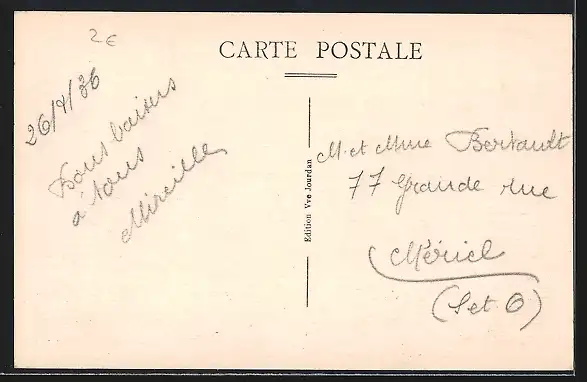 2€
CARTE POSTALE
26/7/36
Bons baisers
à tous
Mireille
Edition Vve Jourdan
M. et Mme Bertault
77 grande rue
Mériel
(S et O)